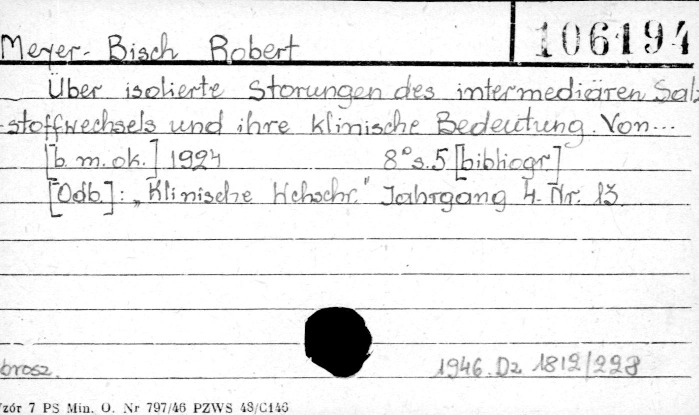 Meyer-Bisch Robert 106194
Über isolierte Storungen des intermediären Salz
-stoffwechsels und ihre klinische Bedeutung. Von...
[b.m.ok.] 1924 8° s.5 [bibliogr]
[Odb.]: "Klinische Wchschr." Jahrgang 4. Nr. 13
brosz. 1946.Dz 1812/228
Wzór 7 PS Min. O. Nr 797/46 PZWS 48/C146